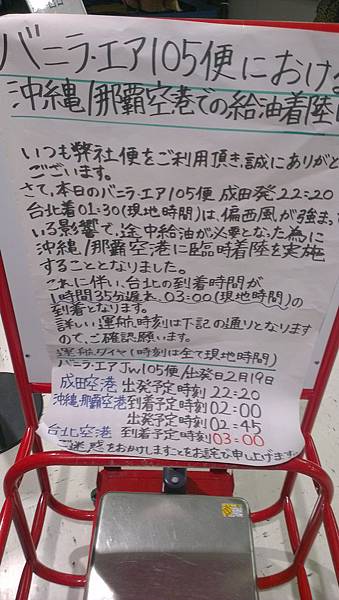 バニラ・エア105便における
沖縄/那覇空港での給油着陸
いつも弊社便をご利用頂き、誠にありがと
ございます。
さて、本日のバニラ・エア105便 成田発22:20
台北着01:30(現地時間)は、偏西風が強まって
いる影響で、途中給油が必要となった為に
沖縄/那覇空港に臨時着陸を実施
することとなりました。
これに伴い、台北の到着時間が
1時間35分遅れ、03:00(現地時間)の
到着となります。
詳しい運航時刻は下記の通りとなります
ので、ご確認願います。
運航ダイヤ(時刻は全て現地時間)
バニラ・エアJW105便/出発日2月19日
成田空港 出発予定時刻 22:20
沖縄・那覇空港 到着予定時刻 02:00
出発予定時刻 02:45
台北空港 到着予定時刻 03:00
ご迷惑をおかけしますことをお詫び申し上げます。